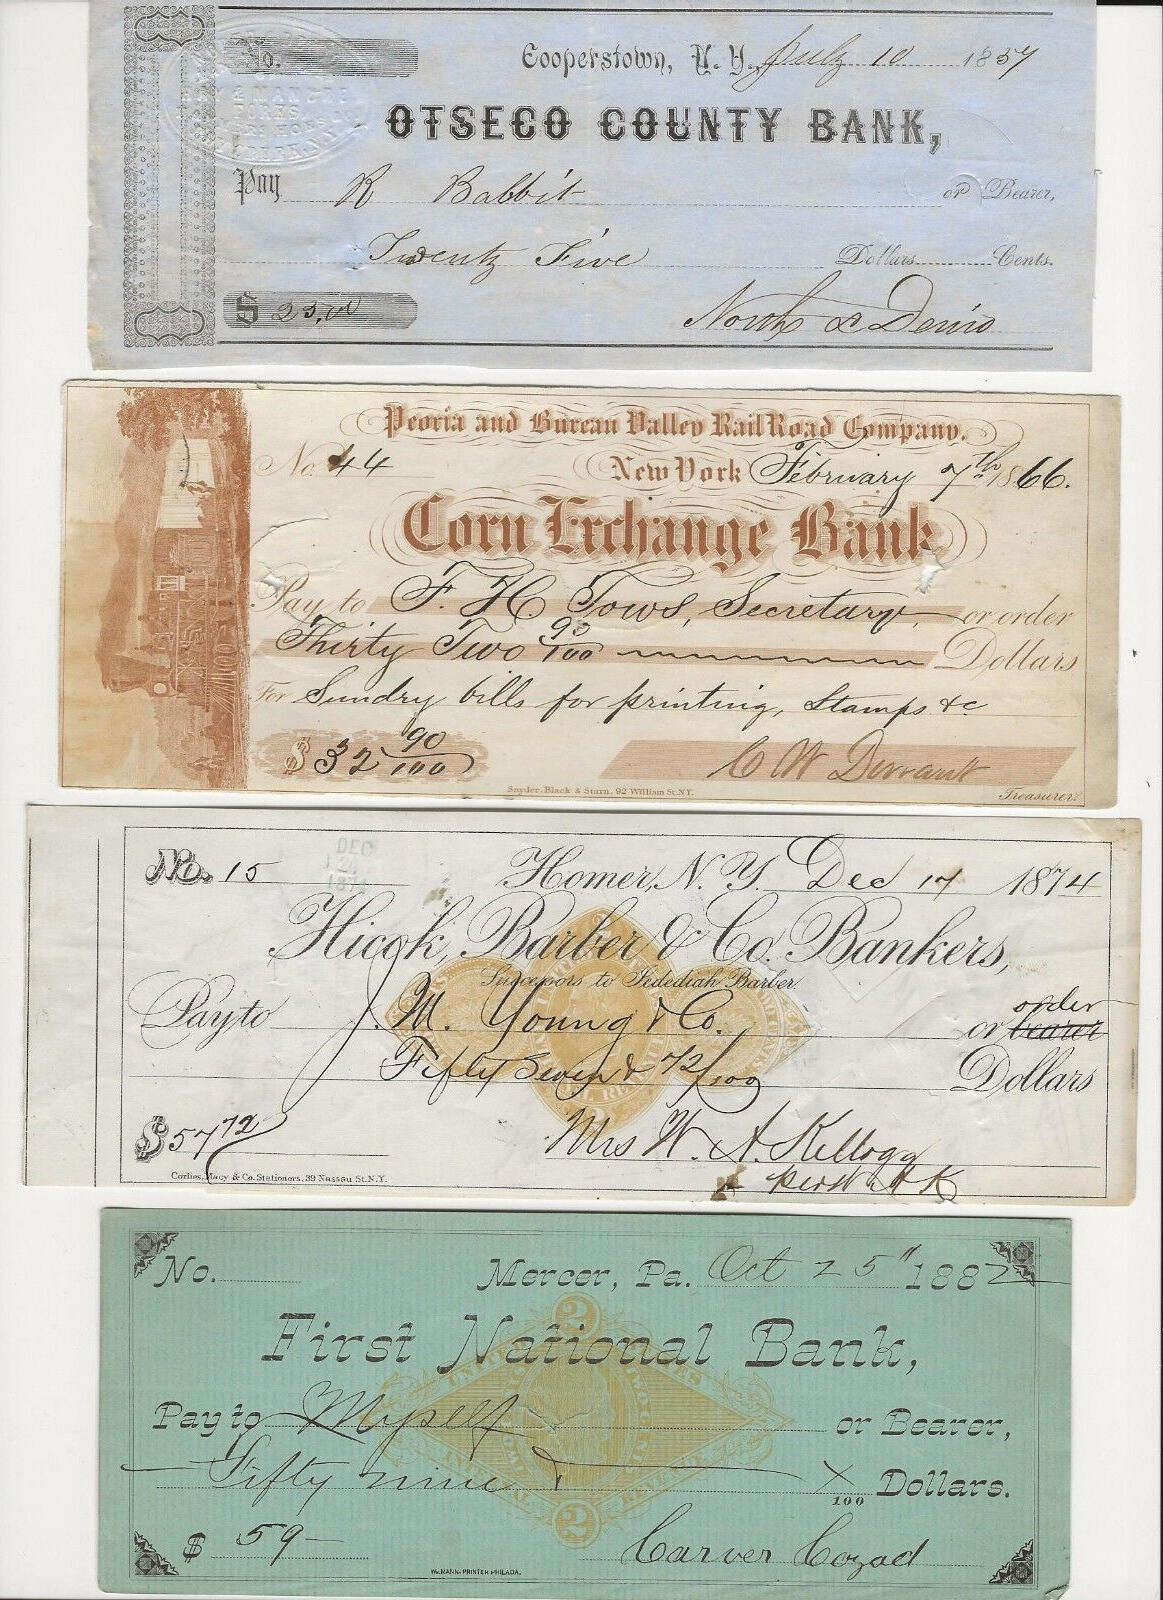 No.
Cooperstown, N. Y., July 10 1857
OTSEGO COUNTY BANK,
Pay R Babbit or Bearer,
Twenty Five Dollars Cents.
$ 25,00
North & Denio
Peoria and Bureau Valley RailRoad Company.
No. 44
New York February 7th 1866.
Corn Exchange Bank
Pay to F. H. Tows, Secretary, or order
Thirty Two 90/100 Dollars
For Sundry bills for printing, Stamps &c
$ 32 90/100
C W Durrant
Treasurer.
Snyder, Black & Sturn, 92 William St. N.Y.
DEC
1874
No. 15 Homer, N. Y. Dec 17 1874
Hicok, Barber & Co. Bankers,
Successors to Jedediah Barber.
order
Pay to J. M. Young & Co. or bearer
Fifty Seven & 72/100 Dollars
$57 72
Mrs W. A. Kellogg
Corlies, Macy & Co. Stationers, 39 Nassau St. N.Y.
No. Mercer, Pa. Oct 25" 1882
First National Bank,
Pay to Myself or Bearer,
Fifty nine & X/100 Dollars.
$ 59-
Carver Cozad
Wm. MANN PRINTER PHILADA.